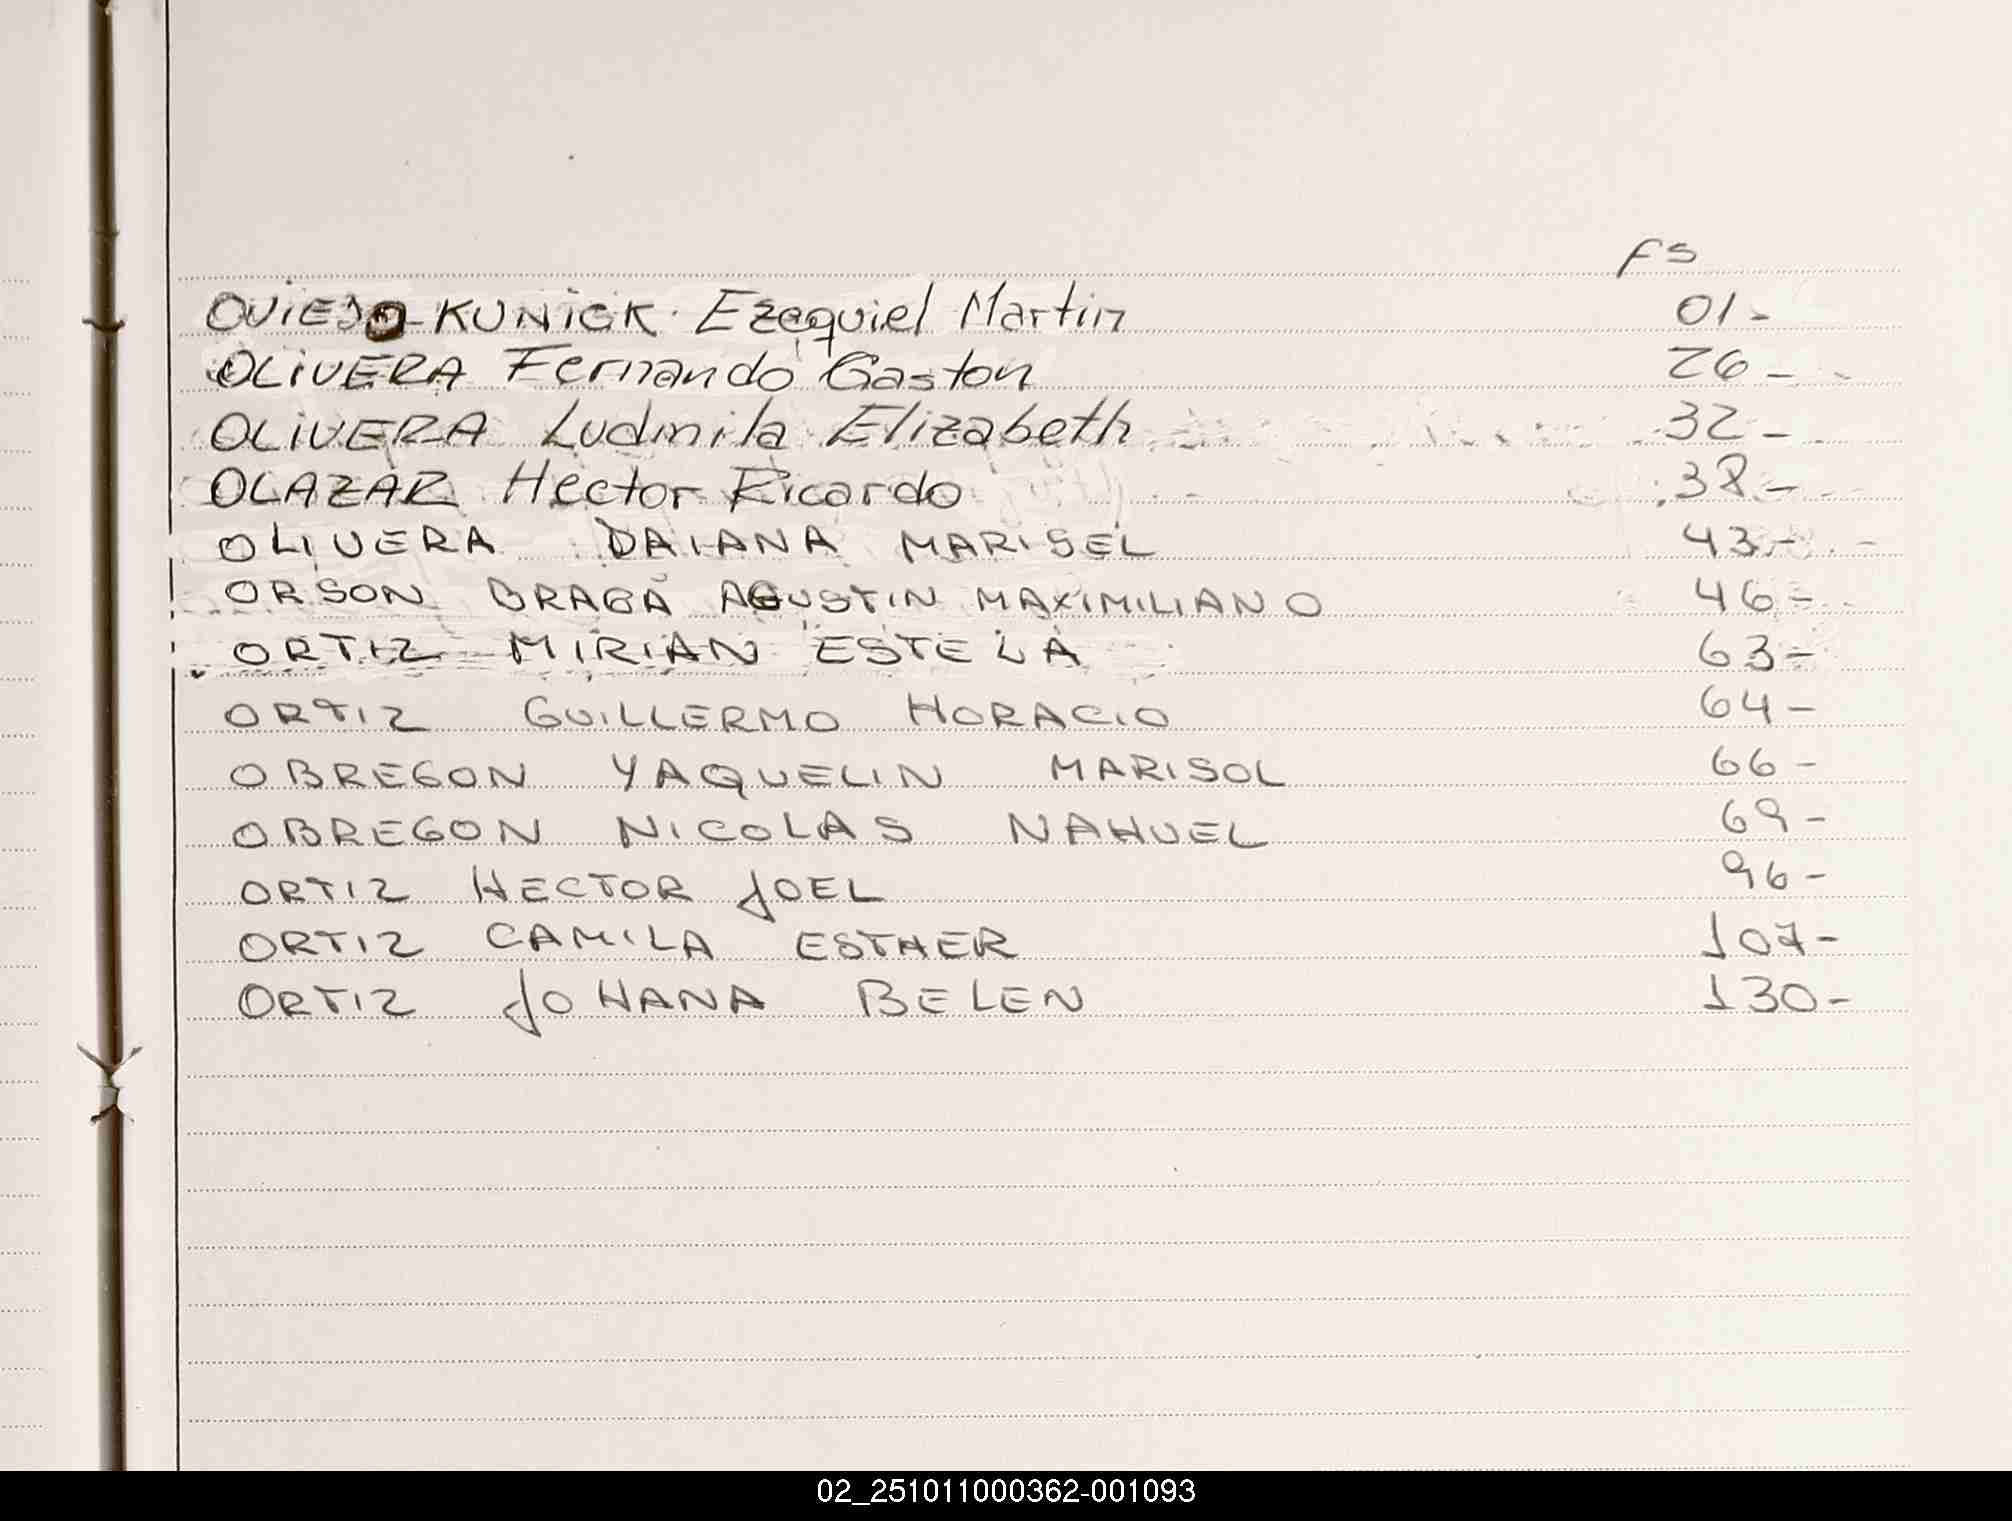 FS
OVIEDO KUNICK Ezequiel Martin 01-
OLIVERA Fernando Gaston 26-
OLIVERA Ludmila Elizabeth 32-
OLAZAR Hector Ricardo 38-
OLIVERA DAIANA MARISEL 43-
ORSON BRAGA AGUSTIN MAXIMILIANO 46-
ORTIZ MIRIAN ESTELA 63-
ORTIZ GUILLERMO HORACIO 64-
OBREGON YAQUELIN MARISOL 66-
OBREGON NICOLAS NAHUEL 69-
ORTIZ HECTOR JOEL 96-
ORTIZ CAMILA ESTHER 107-
ORTIZ JOHANA BELEN 130-
02_251011000362-001093